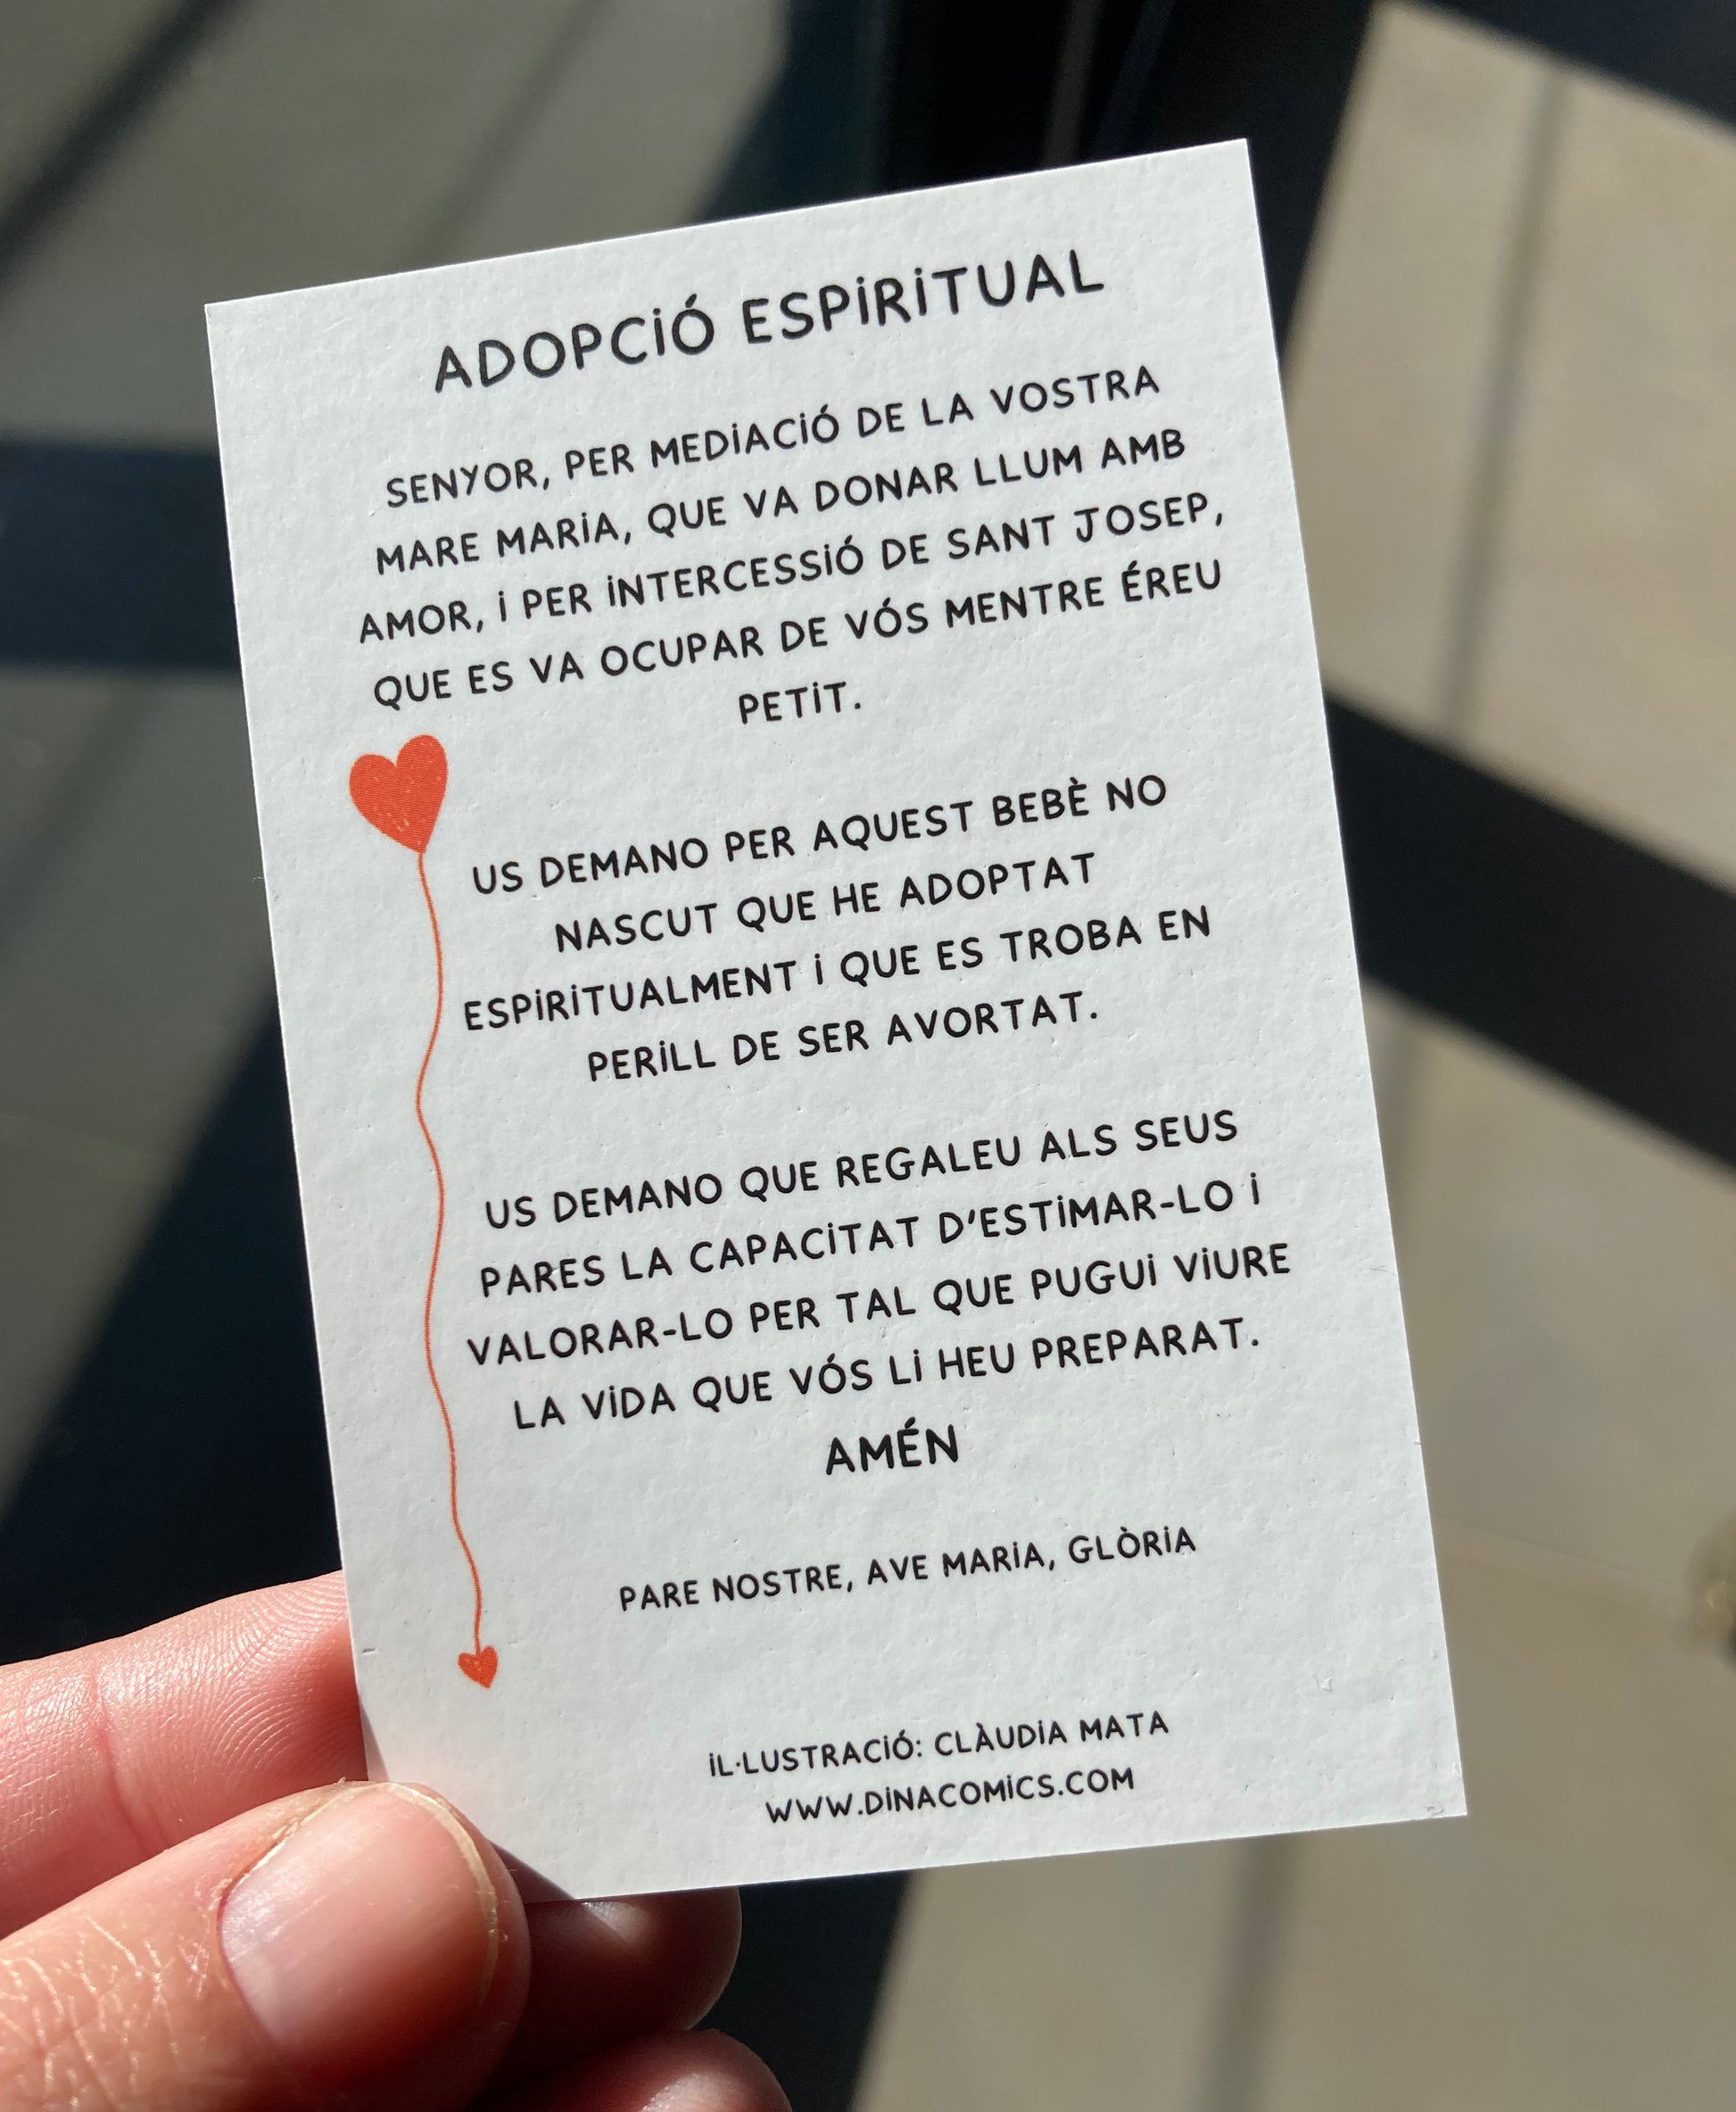 ADOPCIÓ ESPIRITUAL
SENYOR, PER MEDIACIÓ DE LA VOSTRA
MARE MARIA, QUE VA DONAR LLUM AMB
AMOR, I PER INTERCESSIÓ DE SANT JOSEP,
QUE ES VA OCUPAR DE VÓS MENTRE ÉREU
PETIT.
US DEMANO PER AQUEST BEBÈ NO
NASCUT QUE HE ADOPTAT
ESPIRITUALMENT I QUE ES TROBA EN
PERILL DE SER AVORTAT.
US DEMANO QUE REGALEU ALS SEUS
PARES LA CAPACITAT D'ESTIMAR-LO I
VALORAR-LO PER TAL QUE PUGUI VIURE
LA VIDA QUE VÓS LI HEU PREPARAT.
AMÉN
PARE NOSTRE, AVE MARIA, GLÒRIA
IL·LUSTRACIÓ: CLÀUDIA MATA
WWW.DINACOMICS.COM